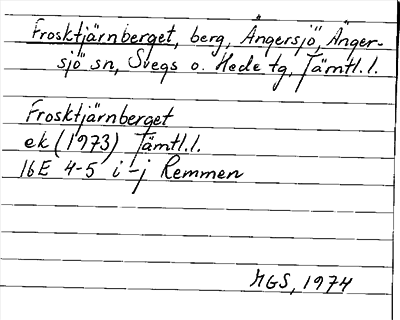 Frosktjärnberget, berg, Ängersjö, Änger-
sjö sn, Svegs o. Hede tg, Jämtl.l.
Frosktjärnberget
ek (1973) Jämtl.l.
16E 4-5 i-j Remmen
MGS, 1974